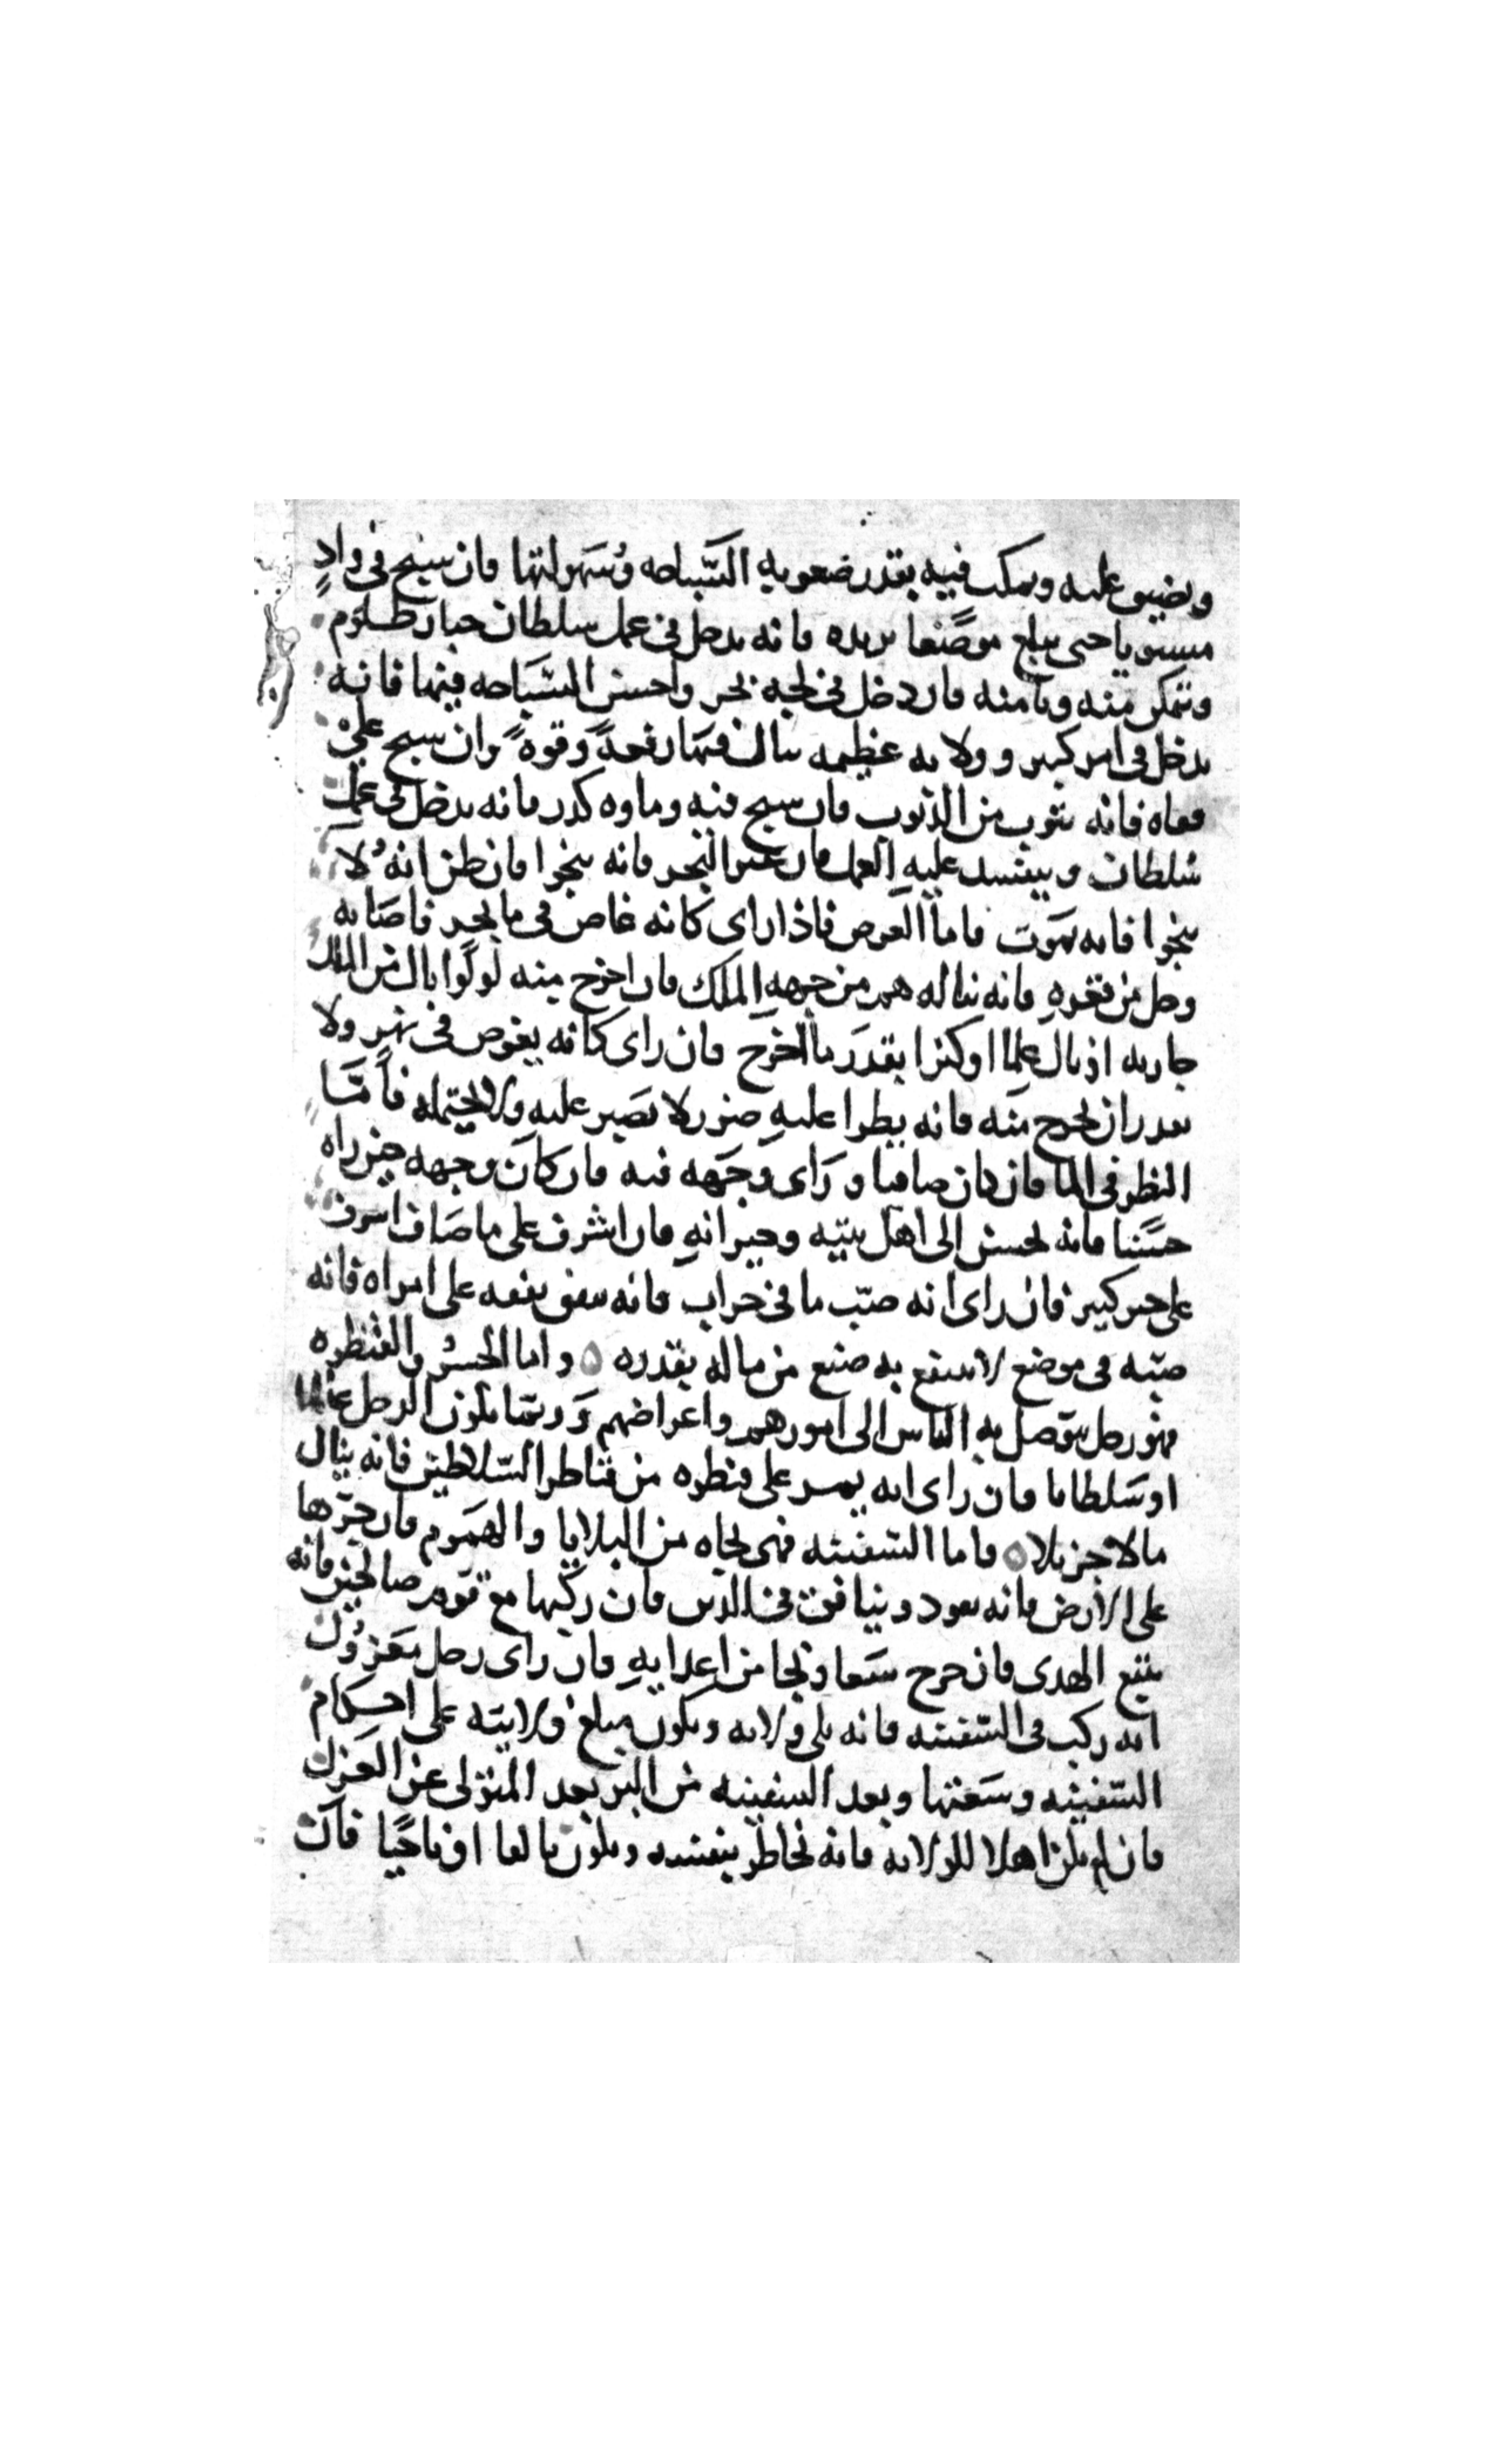 ويضيق عليه ويمكث فيه بقدر صعوبه السّباحه وسهولتها فان سبح في وادٍ
مستويا حتى يبلغ موضعا يريده فانه يدخل في عمل سلطان جبار ظلوم
ويتمكن منه ويامنه فان دخل في لجه بحر واحسن السّباحه فيها فانه
يدخل في امر كبير وولايه عظيمه ينال فيها رفعةً وقوةً وان سبح على
قفاه فانه يتوب من الذنوب فان سبح فيه وماوه كدر فانه يدخل في عمل
سُلطان ويفسد عليهِ العمل فان عبر البحر فانه ينجوا فان ظن انهُ لا
ينجوا فانه يموت فاما الغوص فاذا راى كانه غاص في ما بحر فاصابه
وحل من قعرهِ فانه يناله هم من جهه الملك فان اخرج منه لولوا نال من الملك
جاريه او نال علما او كنزا بقدر ما اخرج فان راى كانه يغوص في نهر ولا
يقدر ان يخرج منه فانه يطرا عليهِ ضرر لا يصبر عليه ولا يحتمله فامّا
النظر في الما فان كان صافيا وراى وجهه فيه فان كان وجهه حين راه
حسَنا فانه يحسن الى اهل بيته وجيرانهِ فان اشرف على ما صاف اشرف
على خير كبير فان راى انه صبّ ما في جراب فانه ينفق نفقه على امراه فانه
صبّه في موضع لا ينتفع به ضيع من ماله بقدره ه واما الجسر والقنطره
فهو رجل يتوصل به الناس الى امورهم واغراضهم وربما يكون الرجل عالما
او سلطانا فان راى انه يمر على قنطره من قناطر السّلاطين فانه ينال
مالا جزيلا ه فاما السّفينه فهى نجاه من البلايا والهموم فان جرّها
على الارض فانه يعود وينافق في الدين فان ركبها مع قوم صالحين فانه
يتبع الهدى فان خرج سعا ونجا من اعدايهِ فان راى رجل معزُول
انه ركب في السّفينه فانه يلى ولايه ويكون مبلغ ولايته على احكام
السّفينه وسعتها وبعد السفينه من البر بعد المتولى عن العزل
فان لم يكن اهلا للولايه فانه يخاطر بنفسه ويكون تالفا او ناجيًا فان